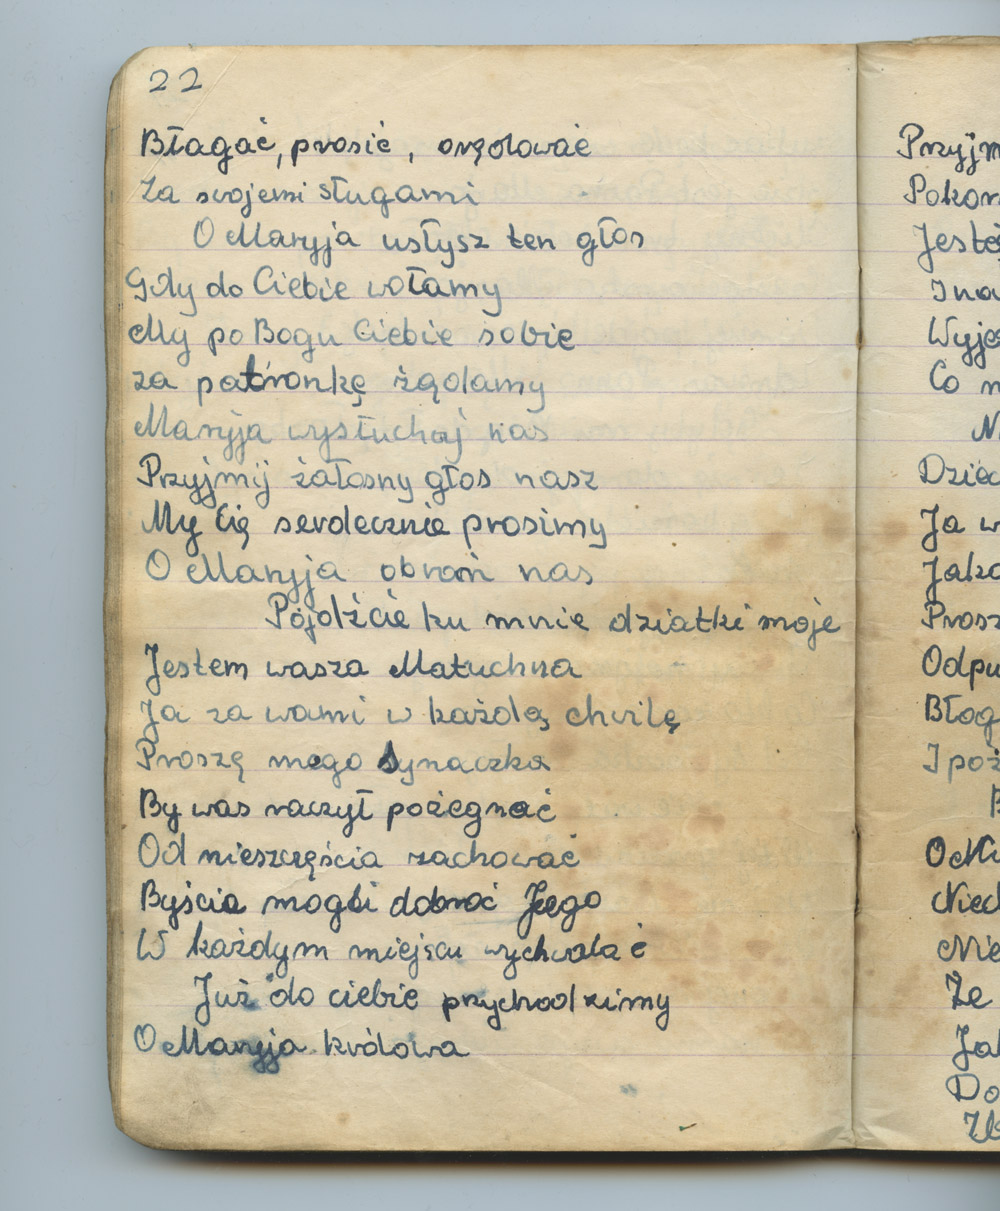 22
Błagać, prosić, orędować
Za swojemi sługami
O Maryja usłysz ten głos
Gdy do Ciebie wołamy
My po Bogu Ciebie sobie
za patronkę żądamy
Maryja wysłuchaj nas
Przyjmij żałosny głos nasz
My Cię serdecznie prosimy
O Maryja obroń nas
Pójdźcie ku mnie dziatki moje
Jestem wasza Matuchna
Ja za wami w każdą chwilę
Proszę mego synaczka
By was raczył pożegnać
Od nieszczęścia zachować
Byścia mogli dobroć Jego
W każdym miejscu wychwalać
Już do ciebie przychodzimy
O Maryja królowa
Przyjm
Pokor
Jesteś
Ina
Wyje
Co
N
Dziec
Ja w
Jako
Prosz
Odpu
Błog
I poż
O Ma
Niech
Nie
Że
Jak
Do